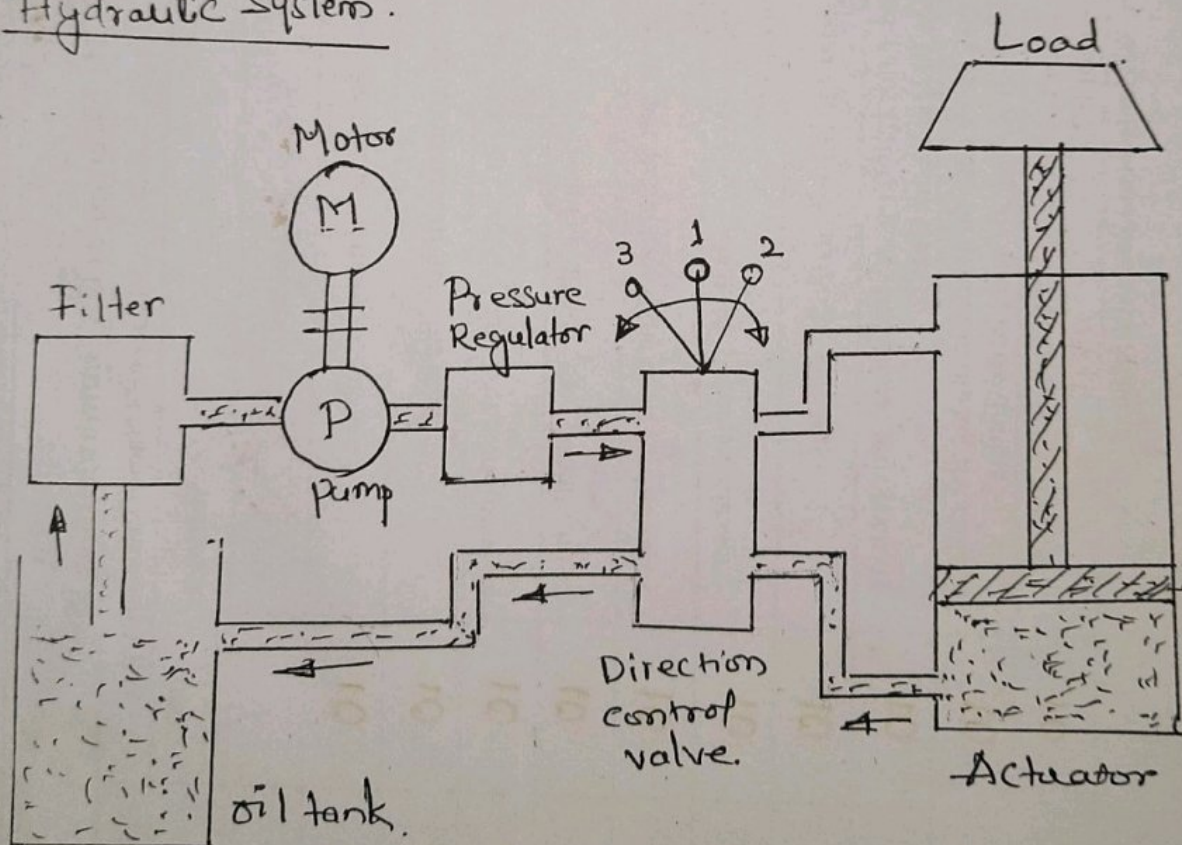 Hydraulic System.
Load
Motor
M
Filter
Pressure
Regulator
3
1
2
P
Pump
Direction
control
valve.
Actuator
oil tank.